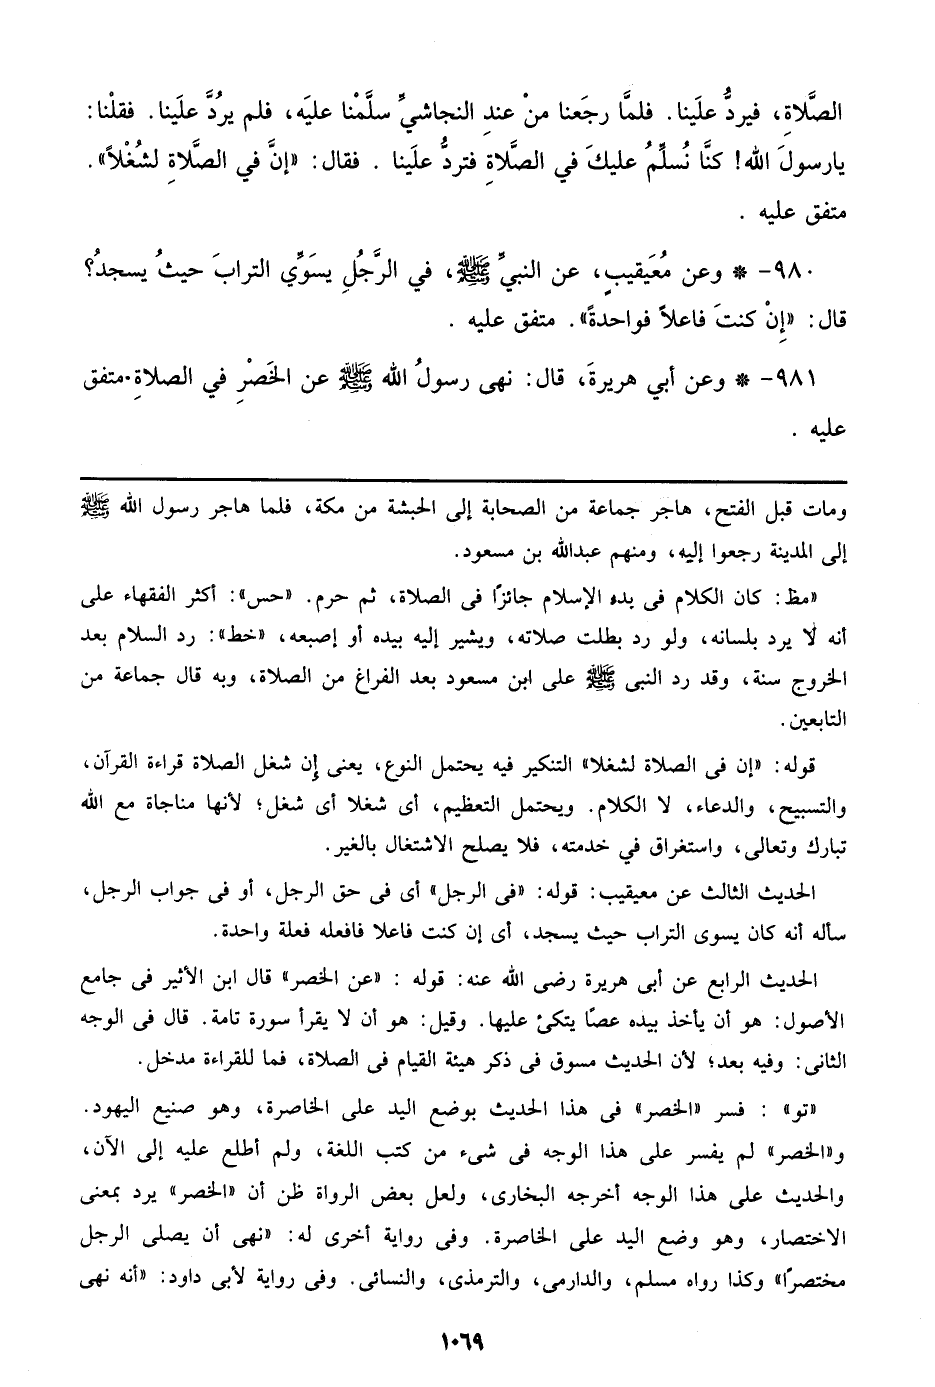 الصَّلاةِ، فيردُّ علَينا. فلمَّا رجَعنا منْ عندِ النجاشيِّ سلَّمْنا عليَه، فلم يرُدَّ علَينا. فقلْنا:
يارسولَ الله! كنَّا نُسلِّمُ عليكَ في الصَّلاةِ فتردُّ علَينا . فقال: «إنَّ في الصَّلاةِ لشُغْلاً».
متفق عليه .
٩٨٠- * وعن مُعَيقيبٍ، عن النبيِّ ﷺ، في الرَّجُلِ يسَوِّي الترابَ حيثُ يسجدُ؟
قال: «إنْ كنتَ فاعلاً فواحدةً». متفق عليه .
٩٨١- * وعن أبي هريرةَ، قال: نهى رسولُ الله ﷺ عن الخَصْرِ في الصلاةِ.متفق
عليه .
ومات قبل الفتح، هاجر جماعة من الصحابة إلى الحبشة من مكة، فلما هاجر رسول الله ﷺ
إلى المدينة رجعوا إليه، ومنهم عبدالله بن مسعود.
«مظ: كان الكلام فى بدء الإسلام جائزًا فى الصلاة، ثم حرم. «حس»: أكثر الفقهاء على
أنه لا يرد بلسانه، ولو رد بطلت صلاته، ويشير إليه بيده أو إصبعه، «خط»: رد السلام بعد
الخروج سنة، وقد رد النبى ﷺ على ابن مسعود بعد الفراغ من الصلاة، وبه قال جماعة من
التابعين.
قوله: «إن فى الصلاة لشغلا» التنكير فيه يحتمل النوع، يعنى إن شغل الصلاة قراءة القرآن،
والتسبيح، والدعاء، لا الكلام. ويحتمل التعظيم، أى شغلا أى شغل؛ لأنها مناجاة مع الله
تبارك وتعالى، واستغراق في خدمته، فلا يصلح الاشتغال بالغير.
الحديث الثالث عن معيقيب: قوله: «فى الرجل» أى فى حق الرجل، أو فى جواب الرجل،
سأله أنه كان يسوى التراب حيث يسجد، أى إن كنت فاعلا فافعله فعلة واحدة.
الحديث الرابع عن أبى هريرة رضى الله عنه: قوله : «عن الخصر» قال ابن الأثير فى جامع
الأصول: هو أن يأخذ بيده عصًا يتكئ عليها. وقيل: هو أن لا يقرأ سورة تامة. قال فى الوجه
الثانى: وفيه بعد؛ لأن الحديث مسوق فى ذكر هيئة القيام فى الصلاة، فما للقراءة مدخل.
«تو» : فسر «الخصر» فى هذا الحديث بوضع اليد على الخاصرة، وهو صنيع اليهود.
و«الخصر» لم يفسر على هذا الوجه فى شىء من كتب اللغة، ولم أطلع عليه إلى الآن،
والحديث على هذا الوجه أخرجه البخارى، ولعل بعض الرواة ظن أن «الخصر» يرد بمعنى
الاختصار، وهو وضع اليد على الخاصرة. وفى رواية أخرى له: «نهى أن يصلى الرجل
مختصرًا» وكذا رواه مسلم، والدارمى، والترمذى، والنسائى. وفى رواية لأبى داود: «أنه نهى
١٠٦٩